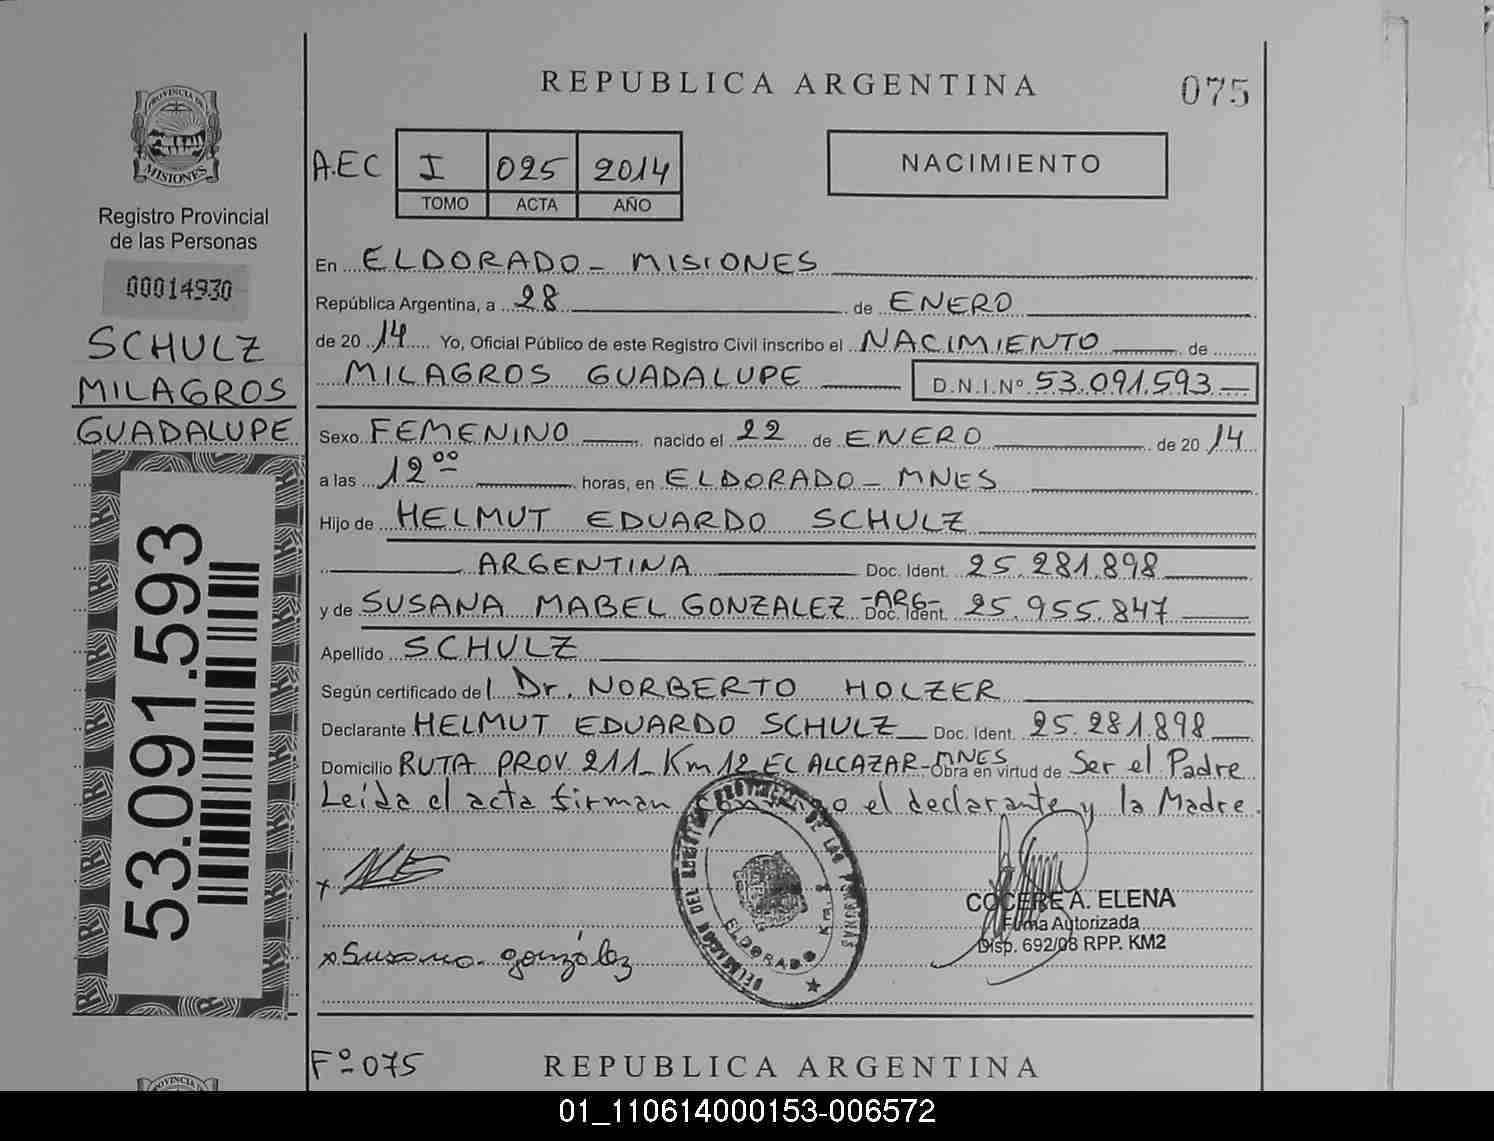 REPUBLICA ARGENTINA
075
PROVINCIA DE
MISIONES
Registro Provincial
de las Personas
00014930
SCHULZ
MILAGROS
GUADALUPE
53.091.593
A.EC I 025 2014
TOMO ACTA AÑO
NACIMIENTO
En ELDORADO - MISIONES
República Argentina, a 28 de ENERO
de 20 14 Yo, Oficial Público de este Registro Civil inscribo el NACIMIENTO de
MILAGROS GUADALUPE D.N.I.Nº 53.091.593
Sexo FEMENINO nacido el 22 de ENERO de 20 14
a las 12 00 horas, en ELDORADO - MNES
Hijo de HELMUT EDUARDO SCHULZ
ARGENTINA Doc. Ident. 25.281.898
y de SUSANA MABEL GONZALEZ -ARG- Doc. Ident. 25.955.847
Apellido SCHULZ
Según certificado del Dr. NORBERTO HOLZER
Declarante HELMUT EDUARDO SCHULZ Doc. Ident. 25.281.898
Domicilio RUTA PROV. 211 - Km 12 EL ALCAZAR - MNES Obra en virtud de Ser el Padre
Leída el acta firman conmigo el declarante y la Madre.
DELEGACION DEL REGISTRO PROVINCIAL DE LAS PERSONAS
ELDORADO Km.
COCERE A. ELENA
Firma Autorizada
Disp. 692/08 RPP. KM2
x Susana González
Fº 075
REPUBLICA ARGENTINA
PROVINCIA DE
01_110614000153-006572